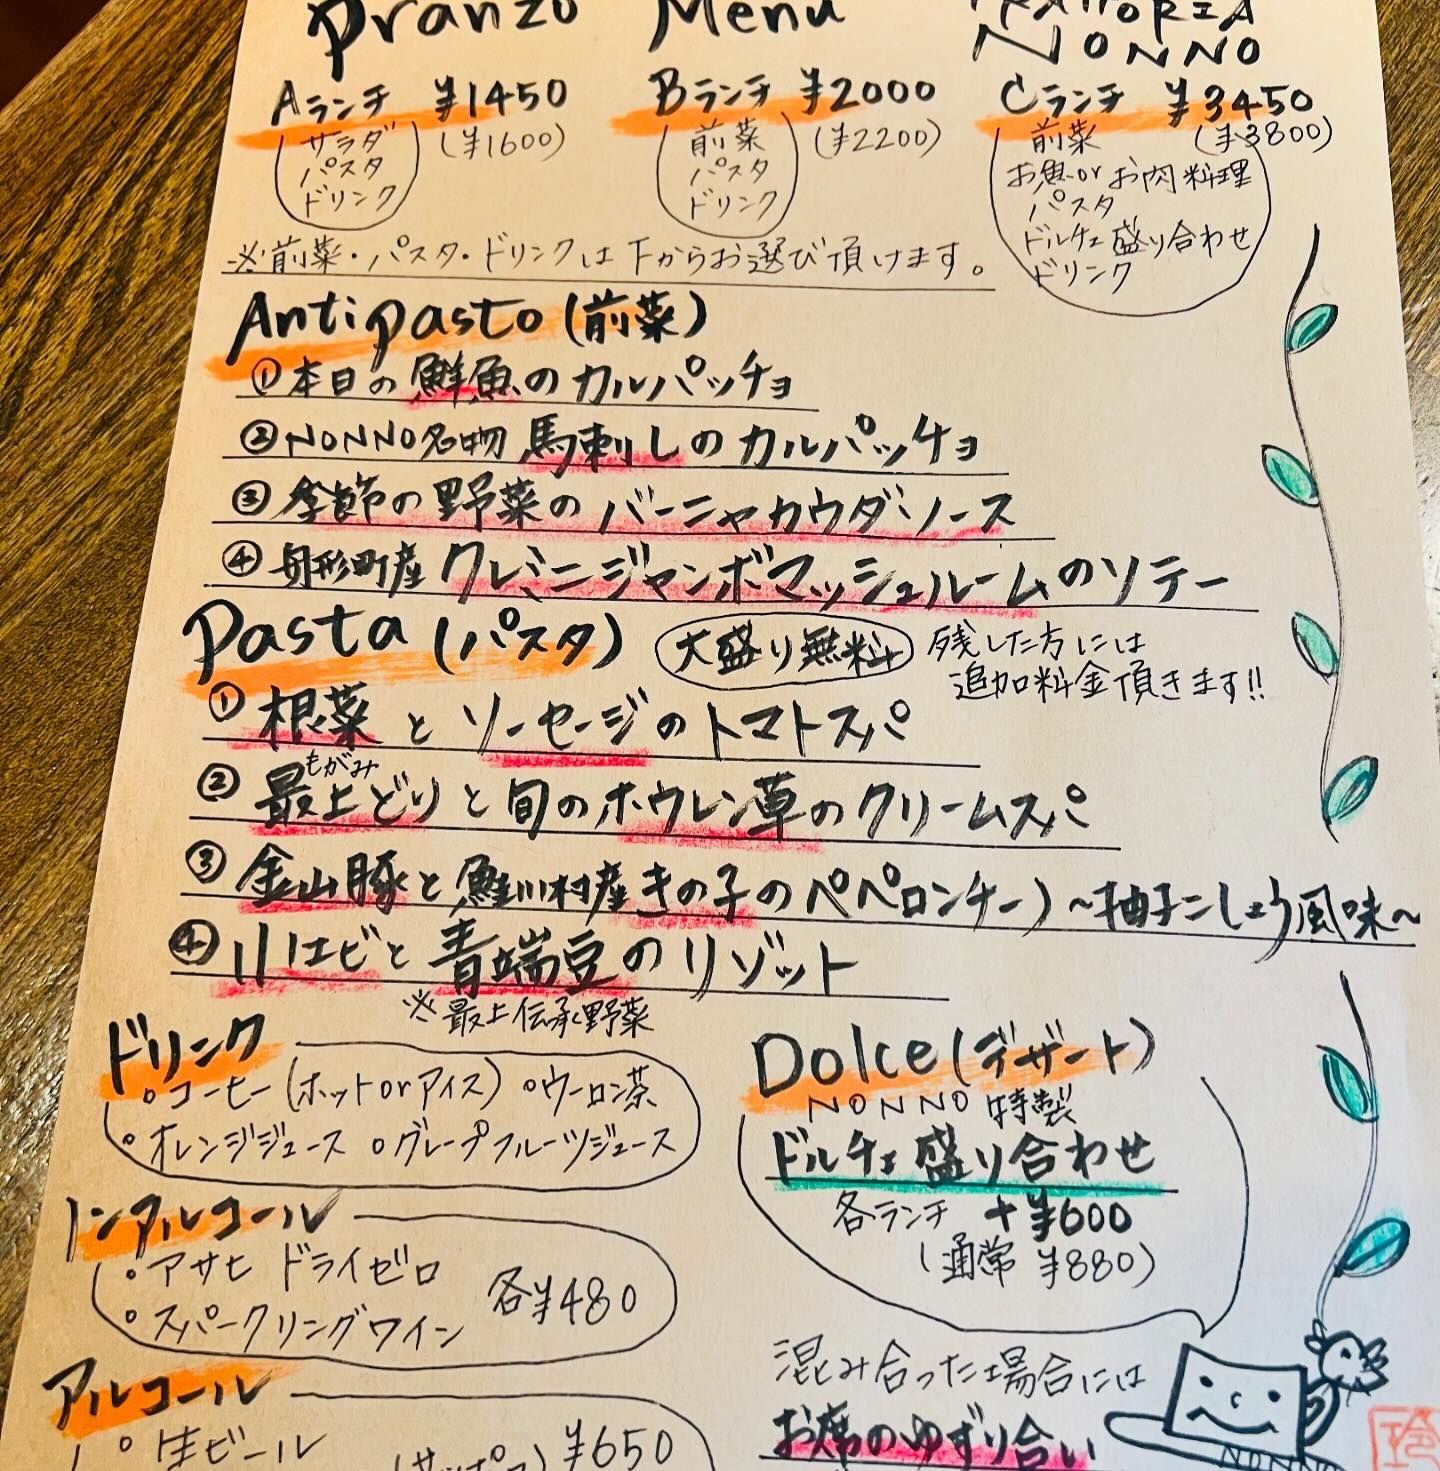 Pranzo Menu TRATTORIA
NONNO
Aランチ ¥1450
(¥1600)
サラダ
パスタ
ドリンク
Bランチ ¥2000
(¥2200)
前菜
パスタ
ドリンク
Cランチ ¥3450
(¥3800)
前菜
お魚orお肉料理
パスタ
ドルチェ盛り合わせ
ドリンク
※前菜・パスタ・ドリンクは下からお選び頂けます。
Antipasto(前菜)
①本日の鮮魚のカルパッチョ
②NONNO名物 馬刺しのカルパッチョ
③季節の野菜のバーニャカウダソース
④舟形町産 クレミニジャンボマッシュルームのソテー
Pasta(パスタ) 大盛り無料 残した方には
追加料金頂きます!!
①根菜とソーセージのトマトスパ
もがみ
②最上どりと旬のホウレン草のクリームスパ
③金山豚と鮭川村産きの子のペペロンチーノ～柚子こしょう風味～
④小エビと青端豆のリゾット
※最上伝承野菜
ドリンク
・コーヒー(ホットorアイス) ・ウーロン茶
・オレンジジュース ・グレープフルーツジュース
ノンアルコール
・アサヒ ドライゼロ
・スパークリングワイン
各¥480
アルコール
・生ビール
¥650
Dolce(デザート)
NONNO特製
ドルチェ盛り合わせ
各ランチ +¥600
(通常 ¥880)
混み合った場合には
お席のゆずり合い
NONNO